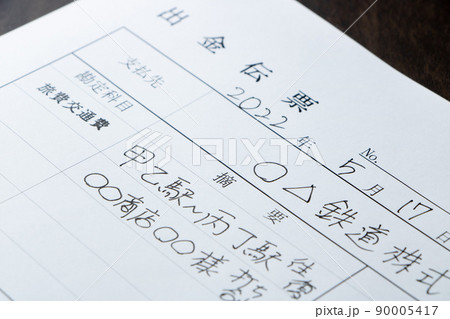 出金伝票
No.
2022年 5月 17日
支払先 〇△鉄道株式
勘定科目 摘要
旅費交通費 甲乙駅〜丙丁駅 往復
〇〇商店〇〇様 打ち
PIXTA
pixta.jp - 90005417